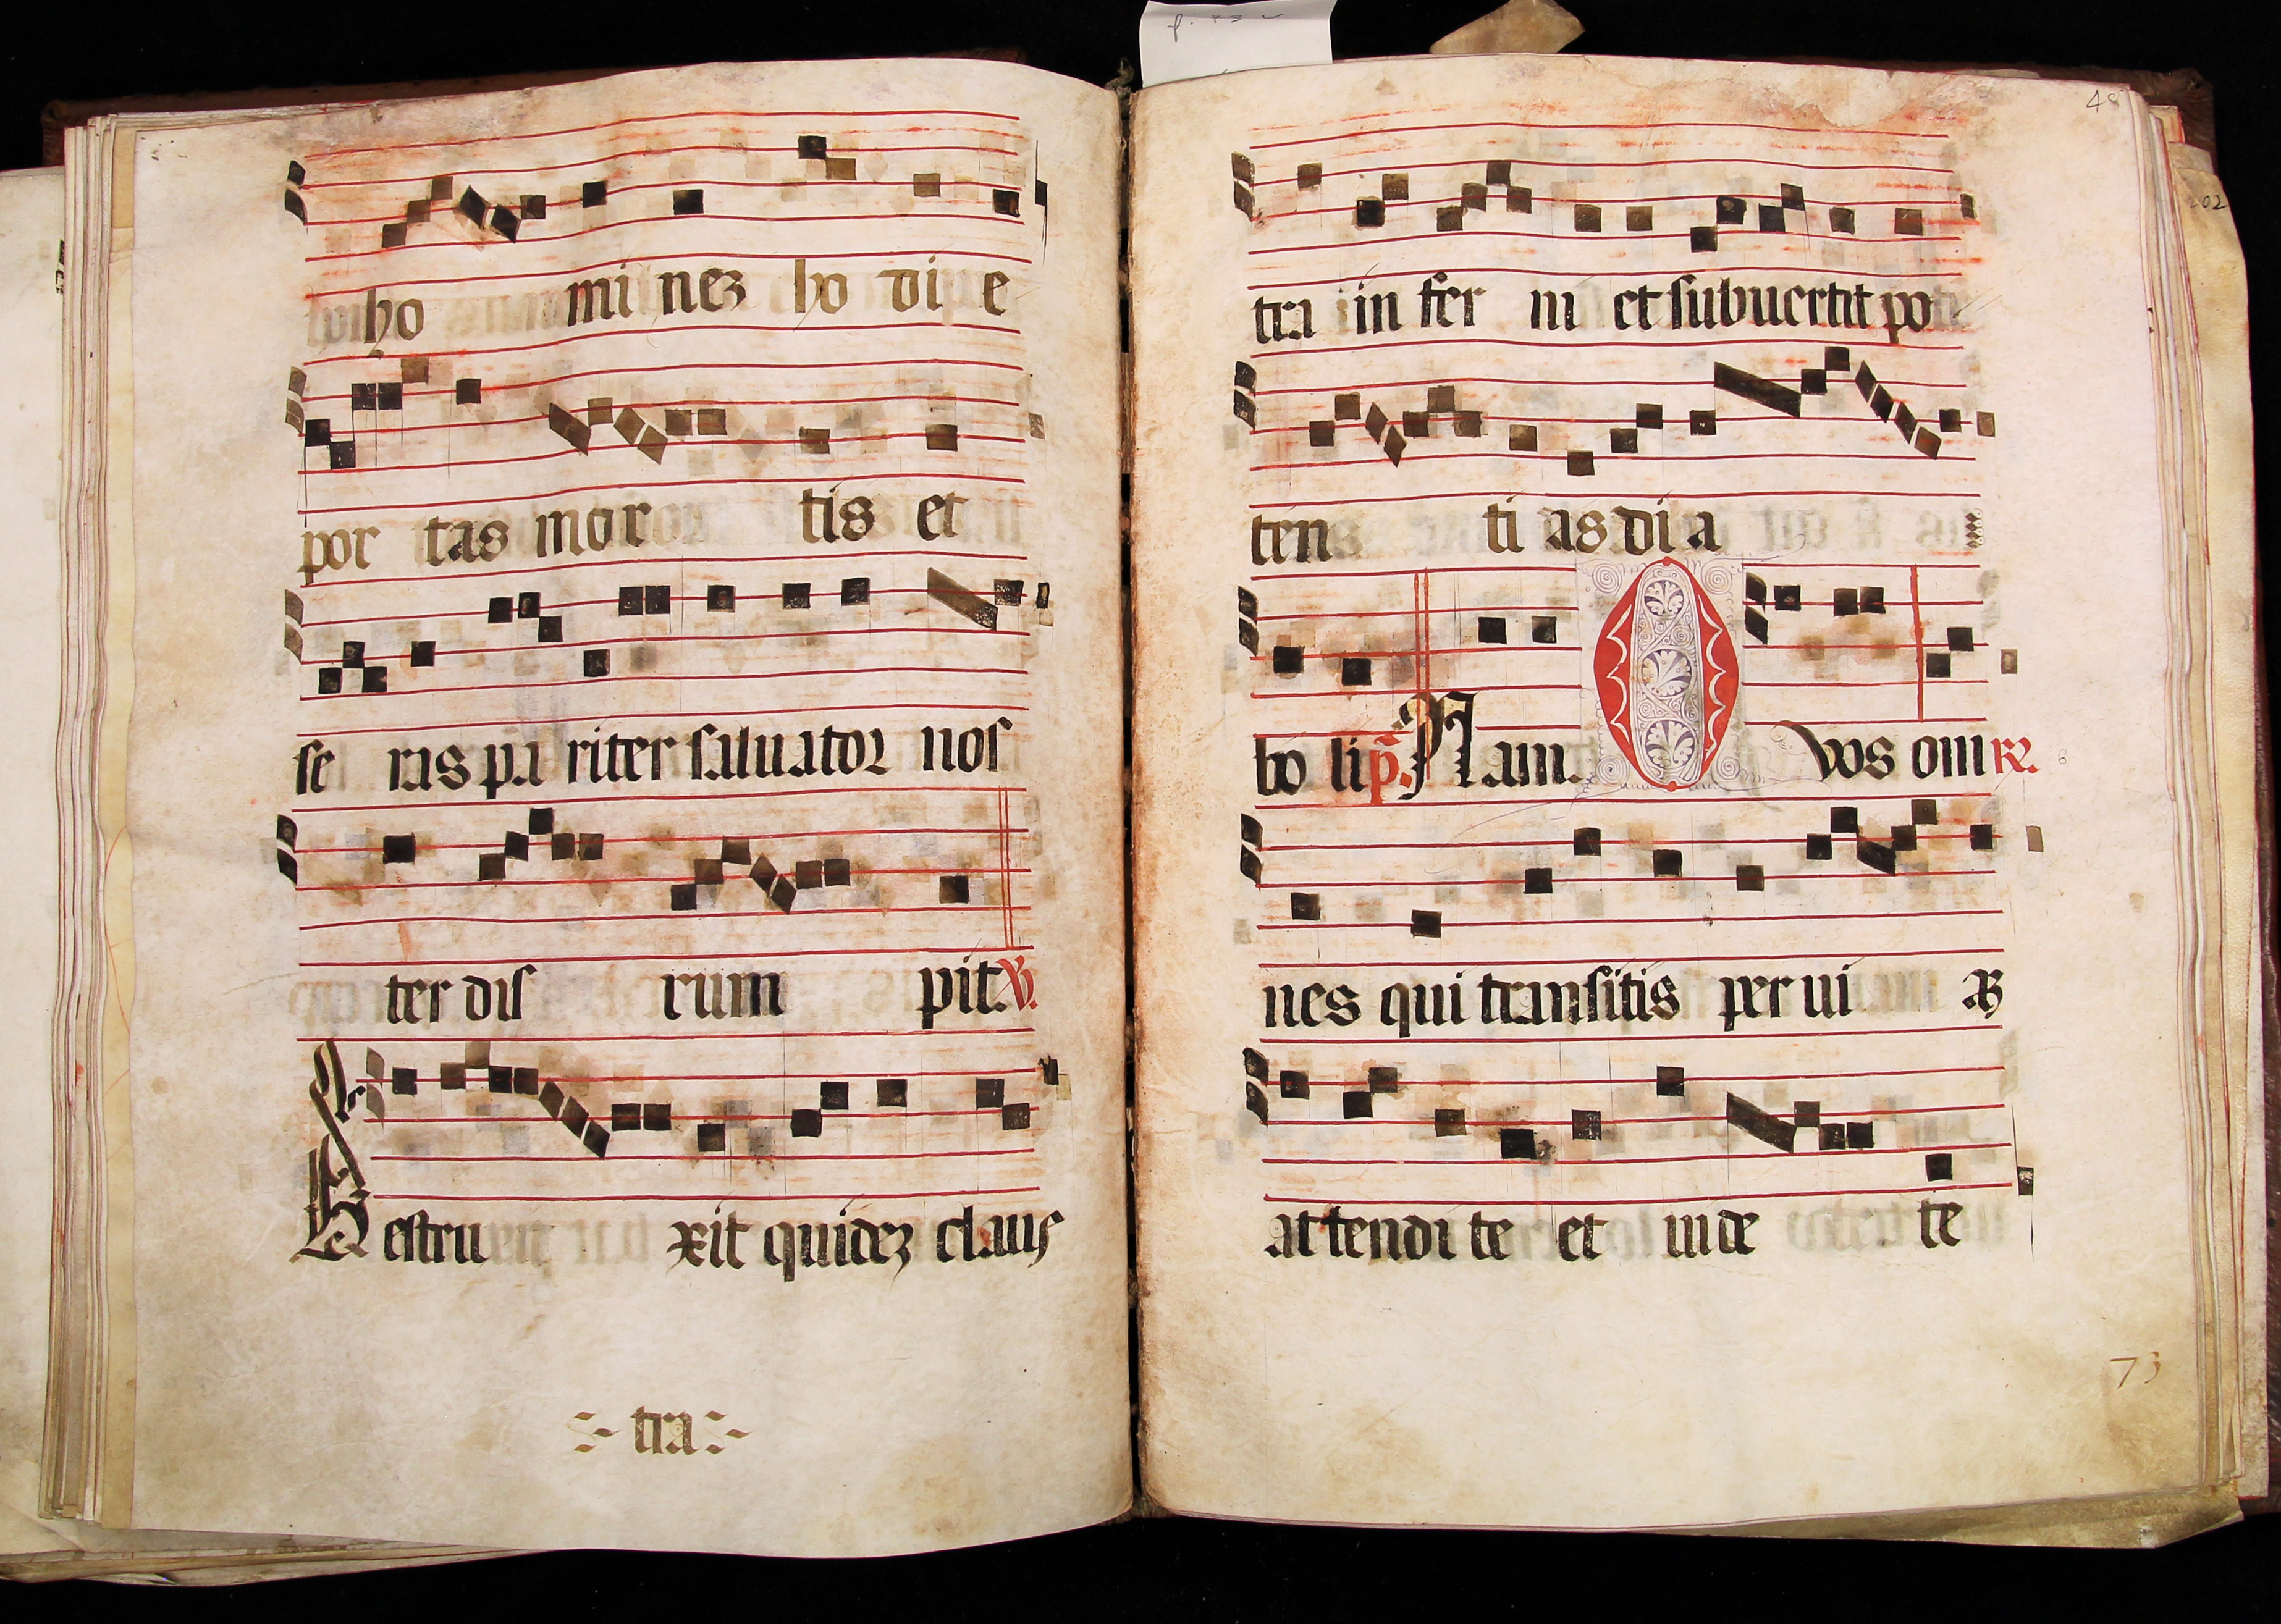 ho mi nez ho di e
por tas mor tis et
se ras pa riter saluator nos
ter dis rum pit. V.
Destru xit quidez claus
tra
48
tra in fer ni et subuertit po
ten ti as di a
bo li p. Nam. O vos om R.
nes qui transitis per ui as
attendi te et uide te
73
202